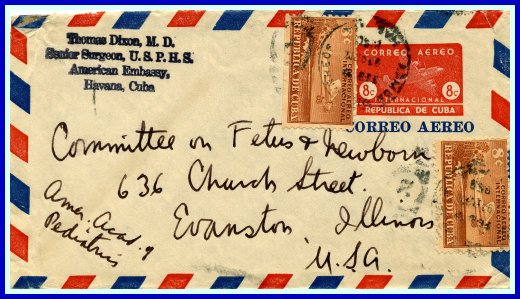 Thomas Dixon, M. D.
Senior Surgeon, U. S. P. H. S.
American Embassy,
Havana, Cuba
8¢
CORREO AEREO
INTERNACIONAL
REPUBLICA DE CUBA
CORREO AEREO
8¢ 8¢
INTERNACIONAL
REPUBLICA DE CUBA
CORREO AEREO
8¢
CORREO AEREO
INTERNACIONAL
REPUBLICA DE CUBA
Committee on Fetus & Newborn
636 Church Street.
Evanston Illinois
U.S.A.
Amer. Acad. of
Pediatrics